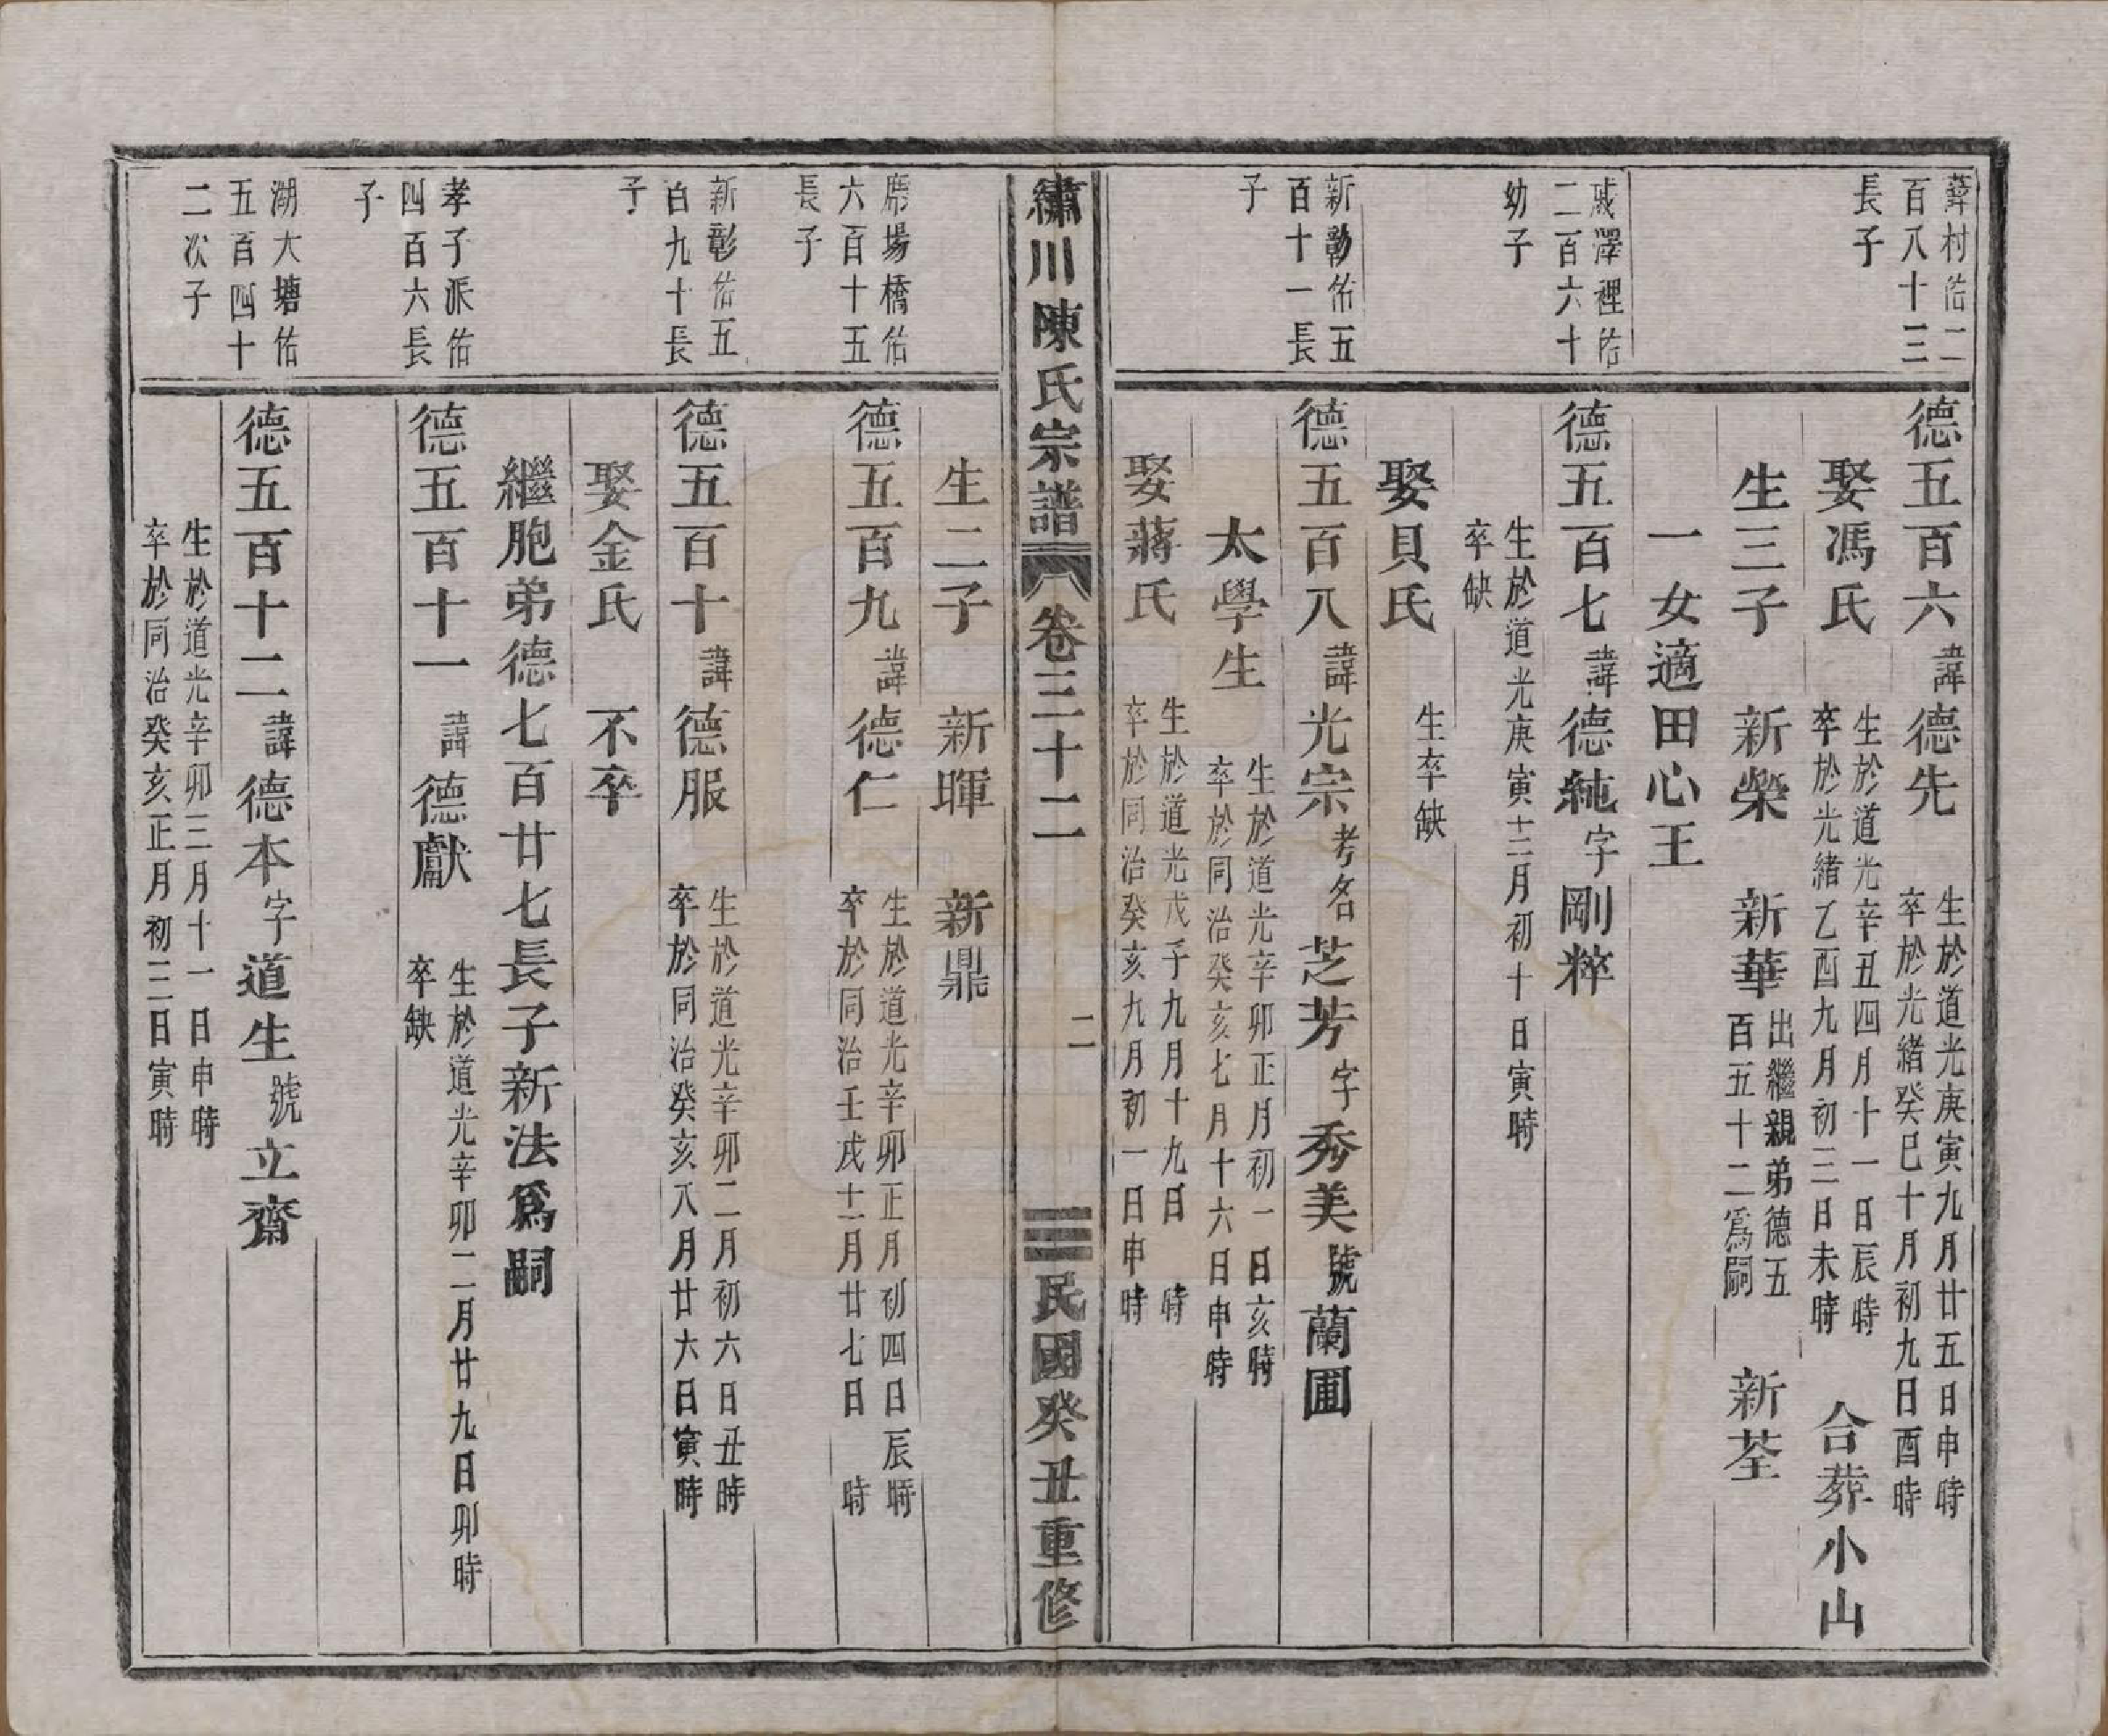 葬村佑二
百八十三
長子
德五百六諱德先
生於道光庚寅九月廿五日申時
卒於光緒癸巳十月初九日酉時
娶馮氏
生於道光辛丑四月十一日辰時
卒於光緒乙酉九月初三日未時
合葬小山
生三子 新榮 新華
出繼親弟德五
百五十二爲嗣
新荃
一女適田心王
戚澤裡佑
二百六十
幼子
德五百七諱德純字剛粹
生於道光庚寅十二月初十日寅時
卒缺
娶貝氏
生卒缺
新勠佑五
百十一長
子
德五百八諱光宗考名芝芳字秀美號蘭圃
太學生
生於道光辛卯正月初一日亥時
卒於同治癸亥七月十六日申時
娶蔣氏
生於道光戊子九月十九日 時
卒於同治癸亥九月初一日申時
繡川陳氏宗譜 卷三十二 二 民國癸丑重修
生二子 新暉 新鼎
席場橋佑
六百十五
長子
德五百九諱德仁
生於道光辛卯正月初四日辰時
卒於同治壬戌十二月廿七日 時
新彰佑五
百九十長
子
德五百十諱德服
生於道光辛卯二月初六日丑時
卒於同治癸亥八月廿六日寅時
娶金氏 不卒
繼胞弟德七百廿七長子新法爲嗣
孝子派佑
四百六長
子
德五百十一諱德獻
生於道光辛卯二月廿九日卯時
卒缺
湖大塘佑
五百四十
二次子
德五百十二諱德本字道生號立齋
生於道光辛卯三月十一日申時
卒於同治癸亥正月初三日寅時